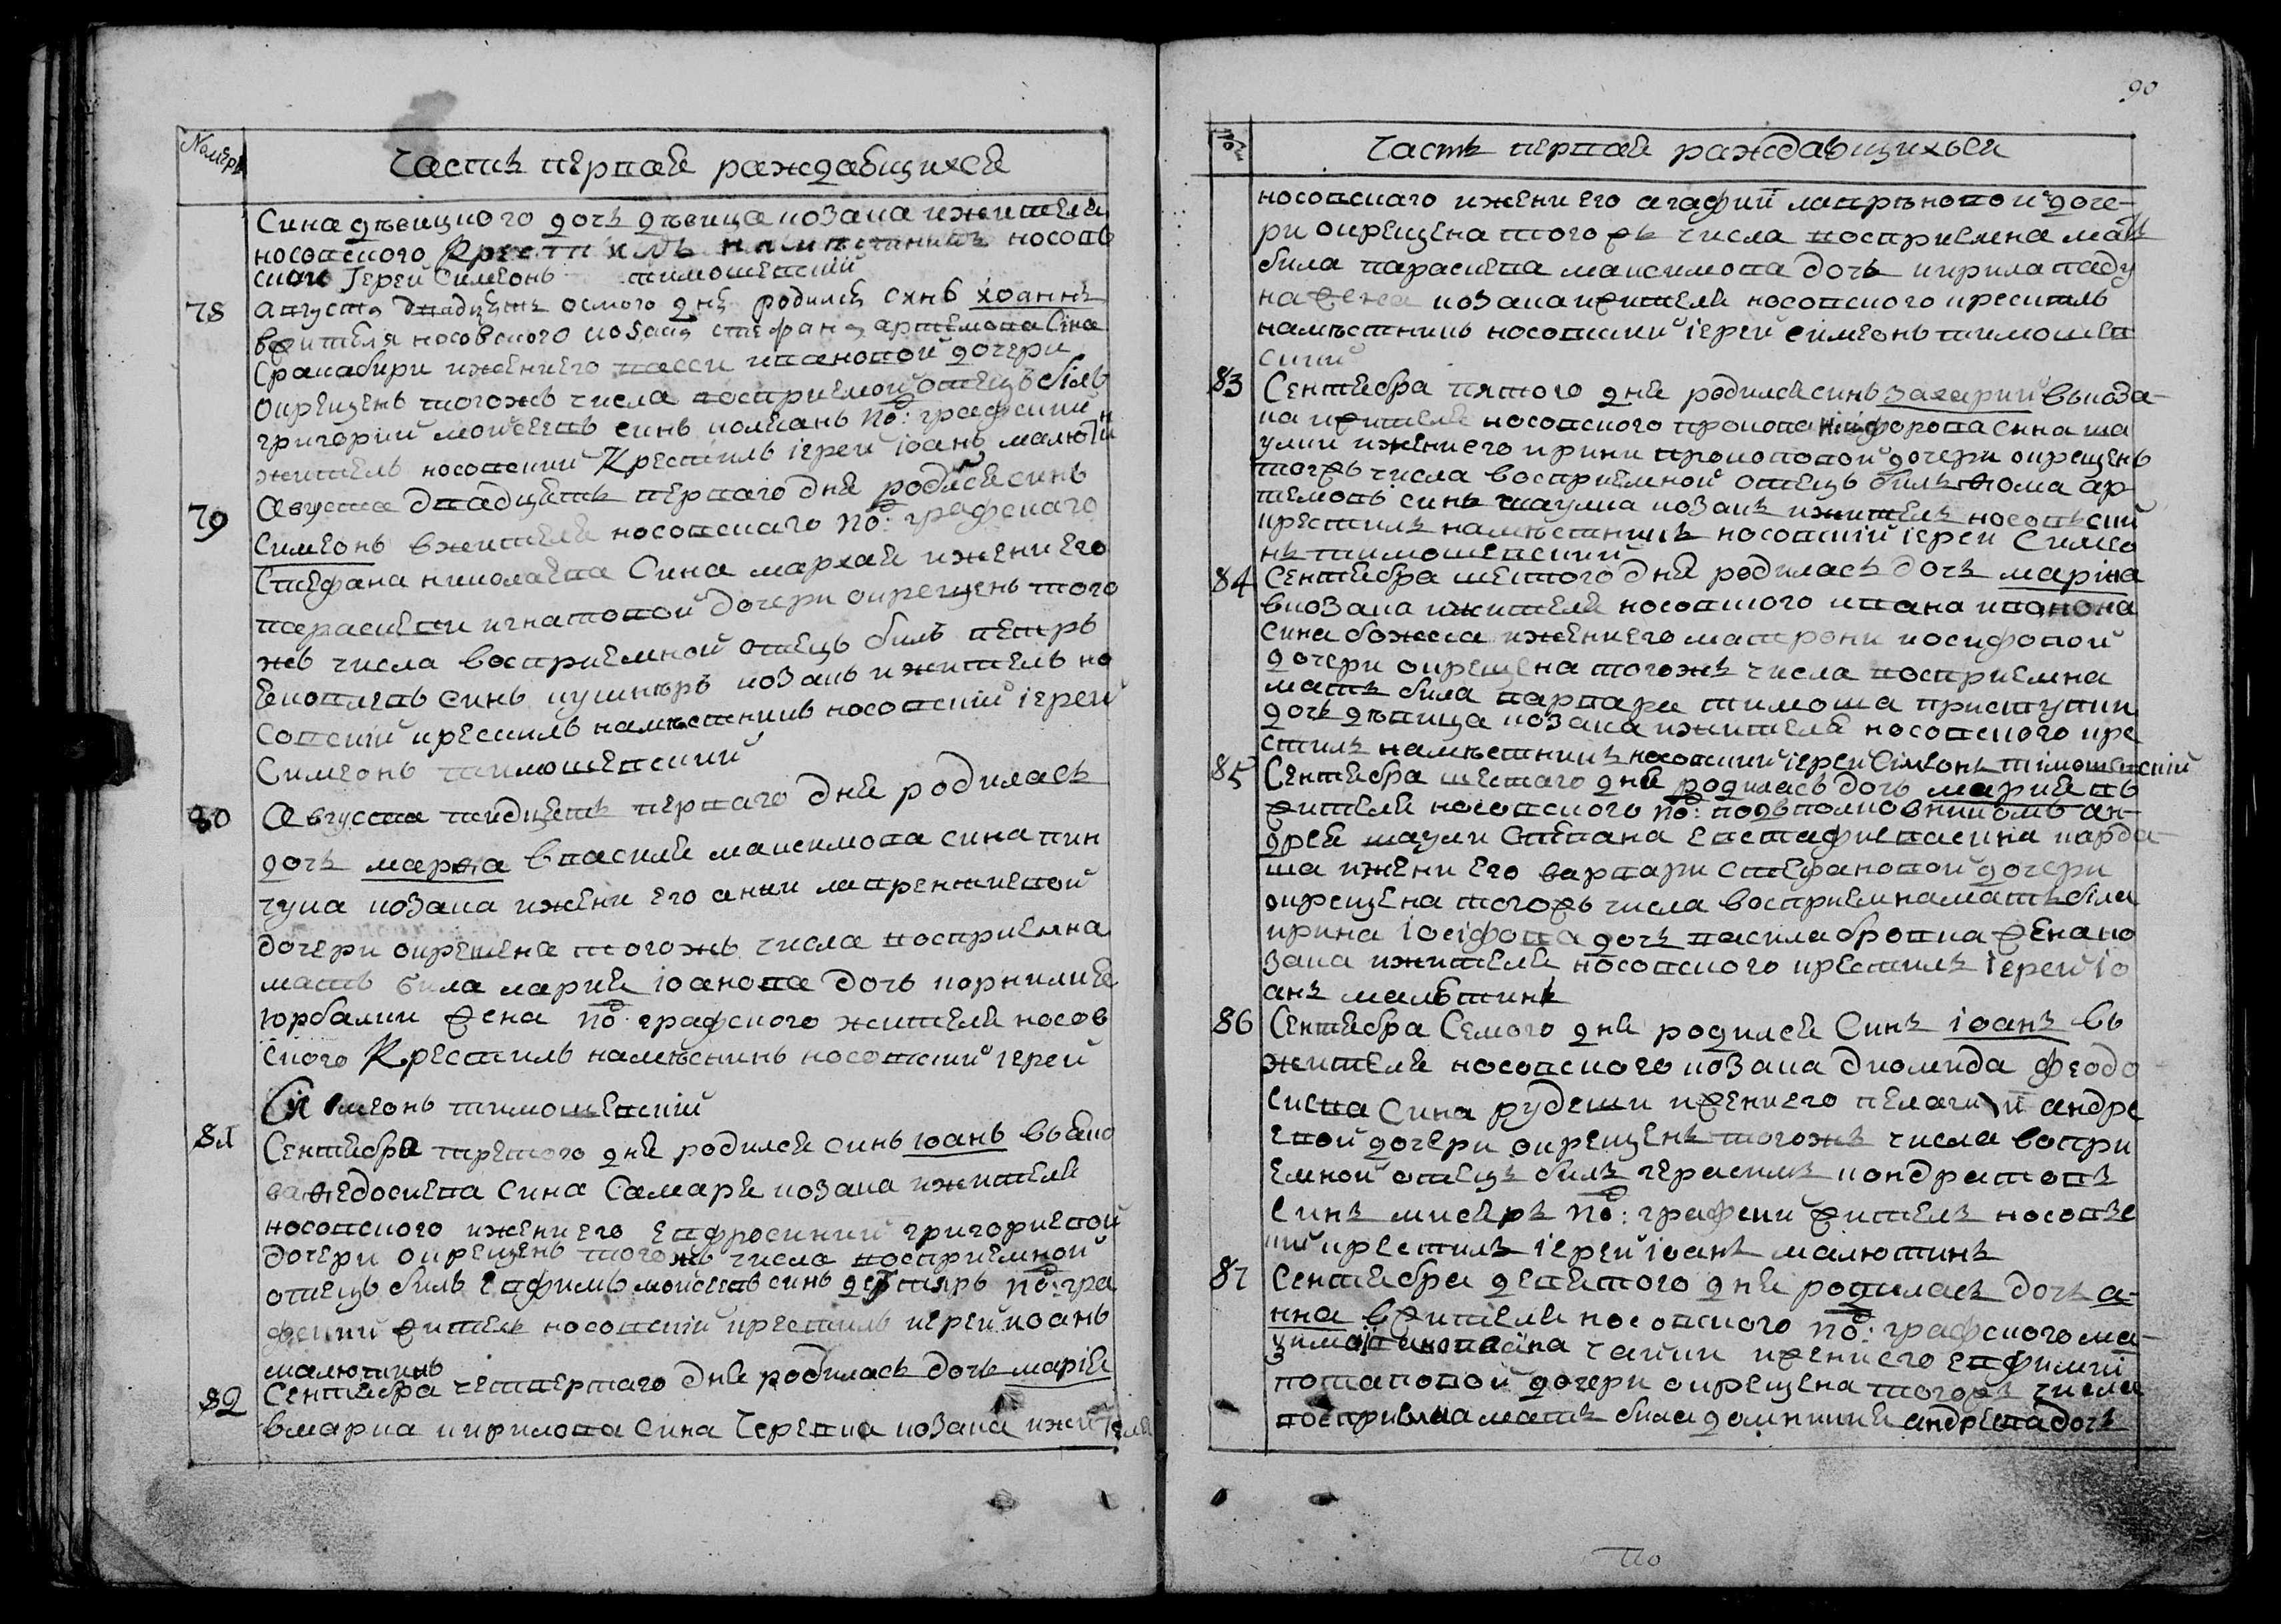 Номеръ
Часть первая раждающихся
Сина дѣвицкого дочь дѣвица козака и жителя
носовского Крестилъ намѣстникъ носовъ
ского Іерей Симеонъ тимошевскій
78
августа двадцять осмого дня родился синъ іоаннъ
в жителя носовского козака стефана артемова Сина
кракабири и жени его васси ивановой дочери
окрещенъ тогожъ числа восприемной отецъ билъ
григорий мойсеевъ синъ колканъ по͏̈д: графский
житель носовский Крестилъ іерей іоанъ малютин
79
Августа двадцять перваго дня родился синъ
Симеонъ в жителя носовского под: графскаго
Стефана николаева Сина мархая и жени его
параскеви игнатовой дочери окрещенъ того
жъ числа восприемной отецъ билъ петръ
яковлевъ синъ кушниръ козакъ и житель но
совский крестилъ намѣстникъ носовский іерей
Симеонъ тимошевский
80
Августа тридцять перваго дня родилась
дочь марѳа в василя максимова сина пин
чука козака и жени его анни лавренжиевой
дочери окрещена тогожъ числа восприемна
мать била мария іоанова дочь корнилия
юрбалки жена под: графского жителя носов
ского Крестилъ намѣстникъ носовский іерей
Симеонъ тимошевскій
81
Сентября третого дня родился синъ іоанъ въ яко
ва федосиева сина Самари козака и жителя
носовского и жени его евфросинии григориевой
дочери окрещенъ тогожъ числа восприемной
отецъ билъ евфимъ мойсеевъ синъ дегтяръ под: гра
фский житель носовский крестилъ иерей иоанъ
малютинъ
82
Сентября четвертаго дня родилась дочь марія
в марка кирилова сина Черевка козака и жителя
90
Часть первая раждающихься
носовскаго и жени его агафий лаврѣновой доче-
ри окрещена тогожъ числа восприемна мать
била параскева максимова дочь кирила паду
на жена козака и жителя носовского креситль
намѣстникъ носовский іерей симеонъ тимошев
ский
83
Сентября пятого дня родился синъ захарий въ коза-
ка и жителя носовского прокопа никифорова сина ша
улки и жени его ирини прокоповой дочери окрещенъ
тогожъ числа восприемной отецъ билъ ѳома ар
темовъ синъ шаулка козакъ и житель носовъский
крестилъ намѣстникъ носовский іерей Симео
нъ тимошевский
84
Сентября шестого дня родилась дочь маріна
в козака и жителя носовского ивана иванова
сина божка и жени его матрони иосифовой
дочери окрещена тогожъ числа восприемна
мать била варвара тимоша приступки
дочь дѣвица козака и жителя носовского кре
стилъ намѣстникъ носовский іерей Сімеонъ тімошевскій
85
Сентября шестаго дня родилась дочь мария въ
жителя носовского под: подъполковникомъ ан-
дрея шаули Степана евстафиева сина карда-
ша и жени его варвари стефановой дочери
окрещена тогожъ числа восприемна мать била
ирина іосіфова дочь василя бровка жена ко
зака и жителя носовского крестилъ іерей іо
анъ малютинъ
86
Сентября Семого дня родился Синъ іоанъ въ
жителя носовского козака диомида феодо
сиева Сина рудеши и жени его пелагий андре
евой дочери окрещенъ тогожъ числа воспри
емной отецъ билъ герасимъ кондратовъ
синъ мисяръ под: графский житель носовъс
кий крестилъ іерей іоанъ малютинъ
87
Сентября девятого дня родилась дочь а-
нна в жителя носовского под: графского ма-
чайки и жени его евфимиі
потаповой дочери окрещена тогожъ числа
восприемна мать била домникия андреева дочь
по